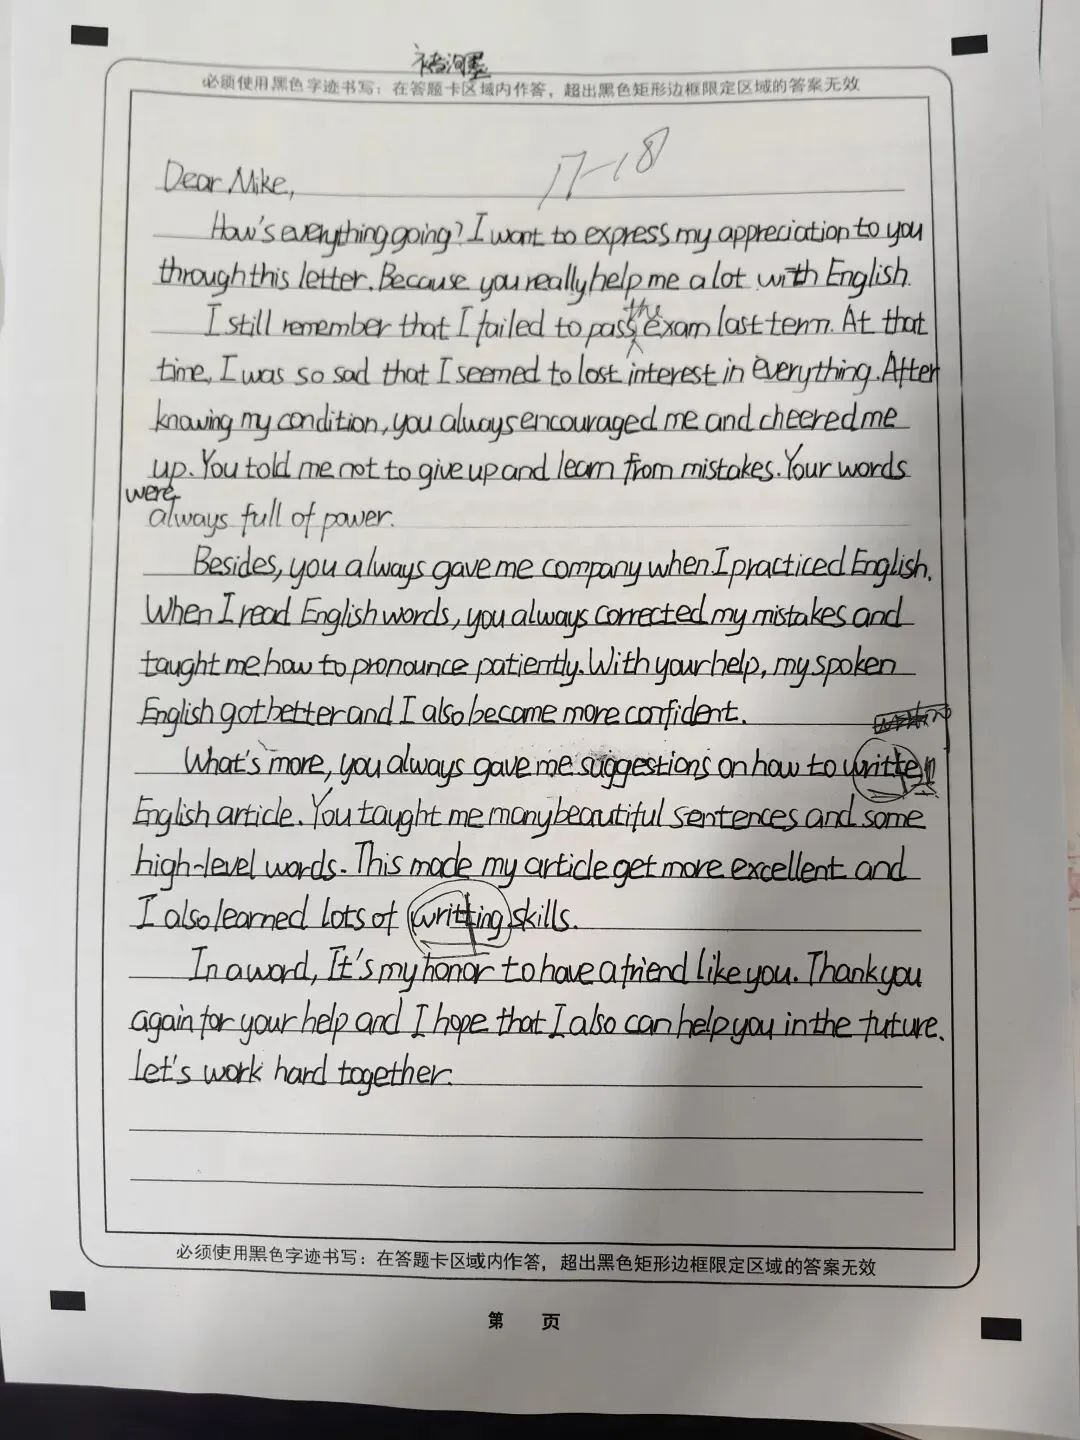 褚洵墨
必须使用黑色字迹书写；在答题卡区域内作答，超出黑色矩形边框限定区域的答案无效
17-18
Dear Mike,
How's everything going? I want to express my appreciation to you
through this letter. Because you really help me a lot with English.
I still remember that I failed to pass the exam last term. At that
time, I was so sad that I seemed to lost interest in everything. After
knowing my condition, you always encouraged me and cheered me
up. You told me not to give up and learn from mistakes. Your words
were
always full of power.
Besides, you always gave me company when I practiced English.
When I read English words, you always corrected my mistakes and
taught me how to pronounce patiently. With your help, my spoken
English got better and I also became more confident.
What's more, you always gave me suggestions on how to written
English article. You taught me many beautiful sentences and some
high-level words. This made my article get more excellent and
I also learned lots of writting skills.
In a word, It's my honor to have a friend like you. Thank you
again for your help and I hope that I also can help you in the future.
Let's work hard together.
必须使用黑色字迹书写；在答题卡区域内作答，超出黑色矩形边框限定区域的答案无效
第 页